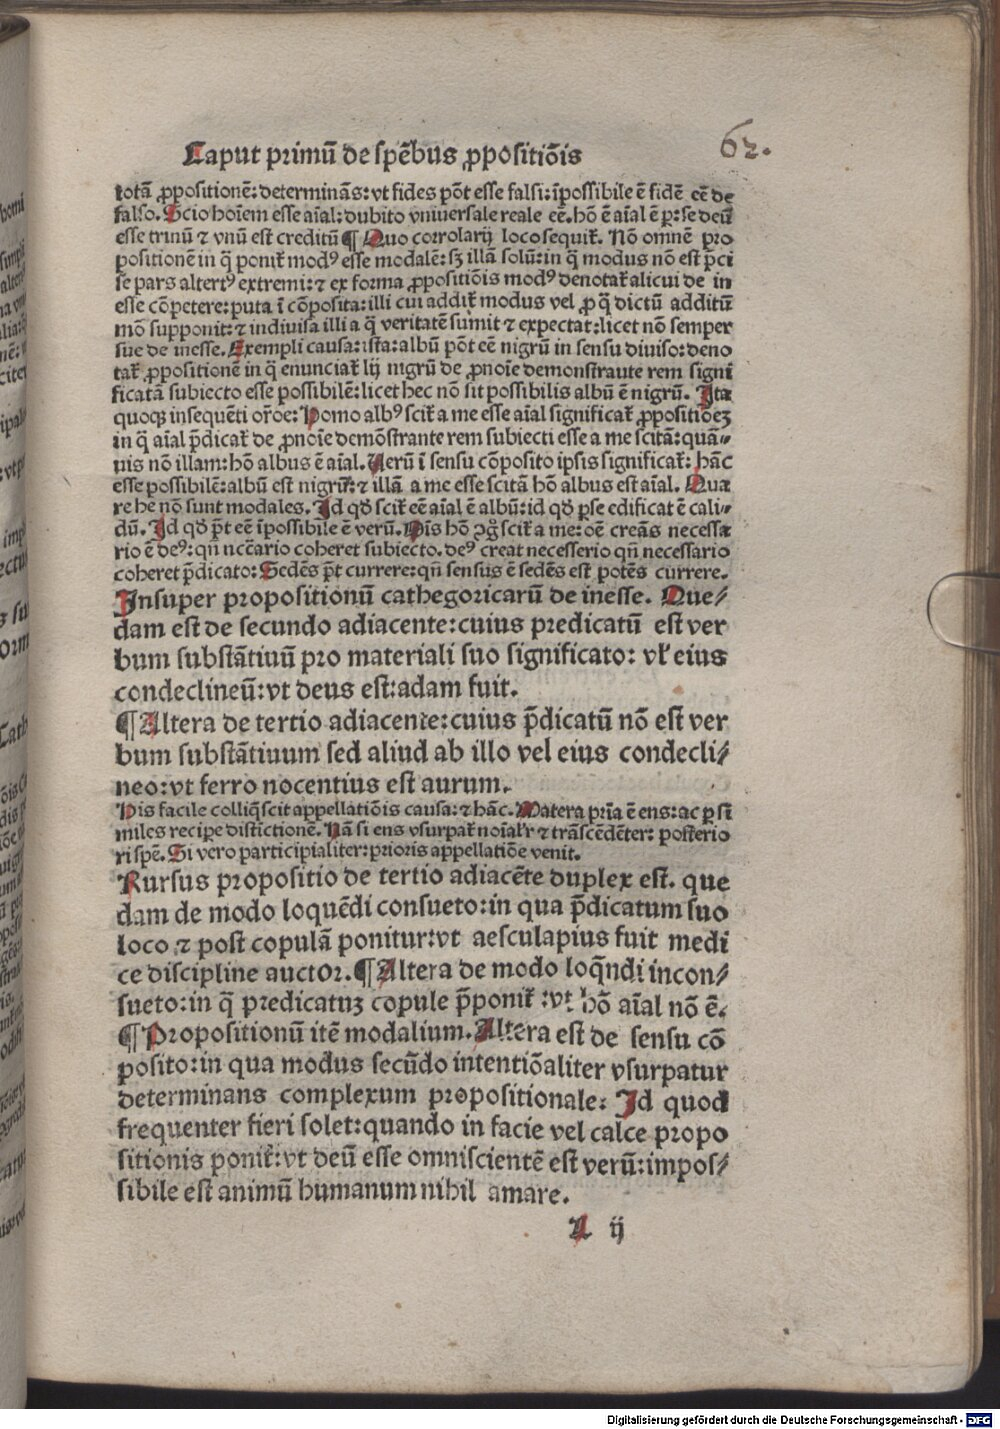 Caput primū de spēbus ꝓpositiōis
62.
totā ꝓpositionē: determinās: vt fides pōt esse falsi: īpossibile ē fidē eē de
falso. Scio hoīem esse aīal: dubito vniuersale reale eē. hō ē aīal ē per se deū
esse trinū ⁊ vnū est creditū ¶ Quo corrolarij loco sequit̃. Nō omnē pro
positionē in q̄ ponit̃ modꝰ esse modalē: sꝫ illā solū: in q̄ modus nō est p̄ci
se pars alterꝰ extremi: ⁊ ex forma ꝓpositiōis modꝰ denotat̃ alicui de in
esse cōpetere: puta ī cōposita: illi cui addit̃ modus vel ꝓ q̄ dictū additū
mō supponit: ⁊ in diuisa illi a q̄ veritatē sumit ⁊ expectat: licet nō semper
sue de inesse. Exempli causa: ista: albū pōt eē nigrū in sensu diuiso: deno
tat̃ ꝓpositionē in q̄ enunciat̃ lij nigrū de ꝓnoīe demonstrante rem signi
ficatā subiecto esse possibilē: licet hec nō sit possibilis albū ē nigrū. Ita
quoqꝫ insequēti or̄oe: Homo albꝰ scit̃ a me esse aīal significat̃ ꝓpositiōeꝫ
in q̄ aīal p̄dicat̃ de ꝓnoīe demōstrante rem subiecti esse a me scitā: quā-
uis nō illam: hō albus ē aīal. Uerū ī sensu cōposito ipsis significat̃: hāc
esse possibilē: albū est nigrū: ⁊ illā a me esse scitā hō albus est aīal. Qua
re he nō sunt modales. Id qd̄ scit̃ eē aīal ē albū: id qd̄ per se edificat ē cali-
dū. Id qd̄ p̄t eē īpossibile ē verū. Ois hō ꝯgr̄ scit̃ a me: oē creās necessa
rio ē deꝰ: qn̄ nc̄cario coheret subiecto. deꝰ creat necesserio qn̄ necessario
coheret p̄dicato: Sedēs p̄t currere: qn̄ sensus ē sedēs est potēs currere.
Insuper propositionū cathegoricarū de inesse. Que/
dam est de secundo adiacente: cuius predicatū est ver
bum substātiuū pro materiali suo significato: vl̓ eius
condeclineū: vt deus est: adam fuit.
¶ Altera de tertio adiacente: cuius p̄dicatū nō est ver
bum substātiuum sed aliud ab illo vel eius condecli/
neo: vt ferro nocentius est aurum.
His facile colliq̄scit appellatiōis causa: ⁊ hāc. Matera prīa ē ens: ac per si
miles recipe distictionē. Nā si ens vsurpat̃ noīal̓r ⁊ trāscēdēter: posterio
ri spē. Si vero participialiter: prioris appellatiōe venit.
Rursus propositio de tertio adiacēte duplex est. que
dam de modo loquēdi consueto: in qua p̄dicatum suo
loco ⁊ post copulā ponitur: vt aesculapius fuit medi
ce discipline auctor. ¶ Altera de modo loq̄ndi incon/
sueto: in q̄ predicatuꝫ copule p̄ponit̃: vt hō aīal nō ē.
¶ Propositionū itē modalium. Altera est de sensu cō
posito: in qua modus secūdo intentiōaliter vsurpatur
determinans complexum propositionale: Id quod
frequenter fieri solet: quando in facie vel calce propo
sitionis ponit̃: vt deū esse omniscientē est verū: impos/
sibile est animū humanum nihil amare.
ij
Digitalisierung gefördert durch die Deutsche Forschungsgemeinschaft - DFG